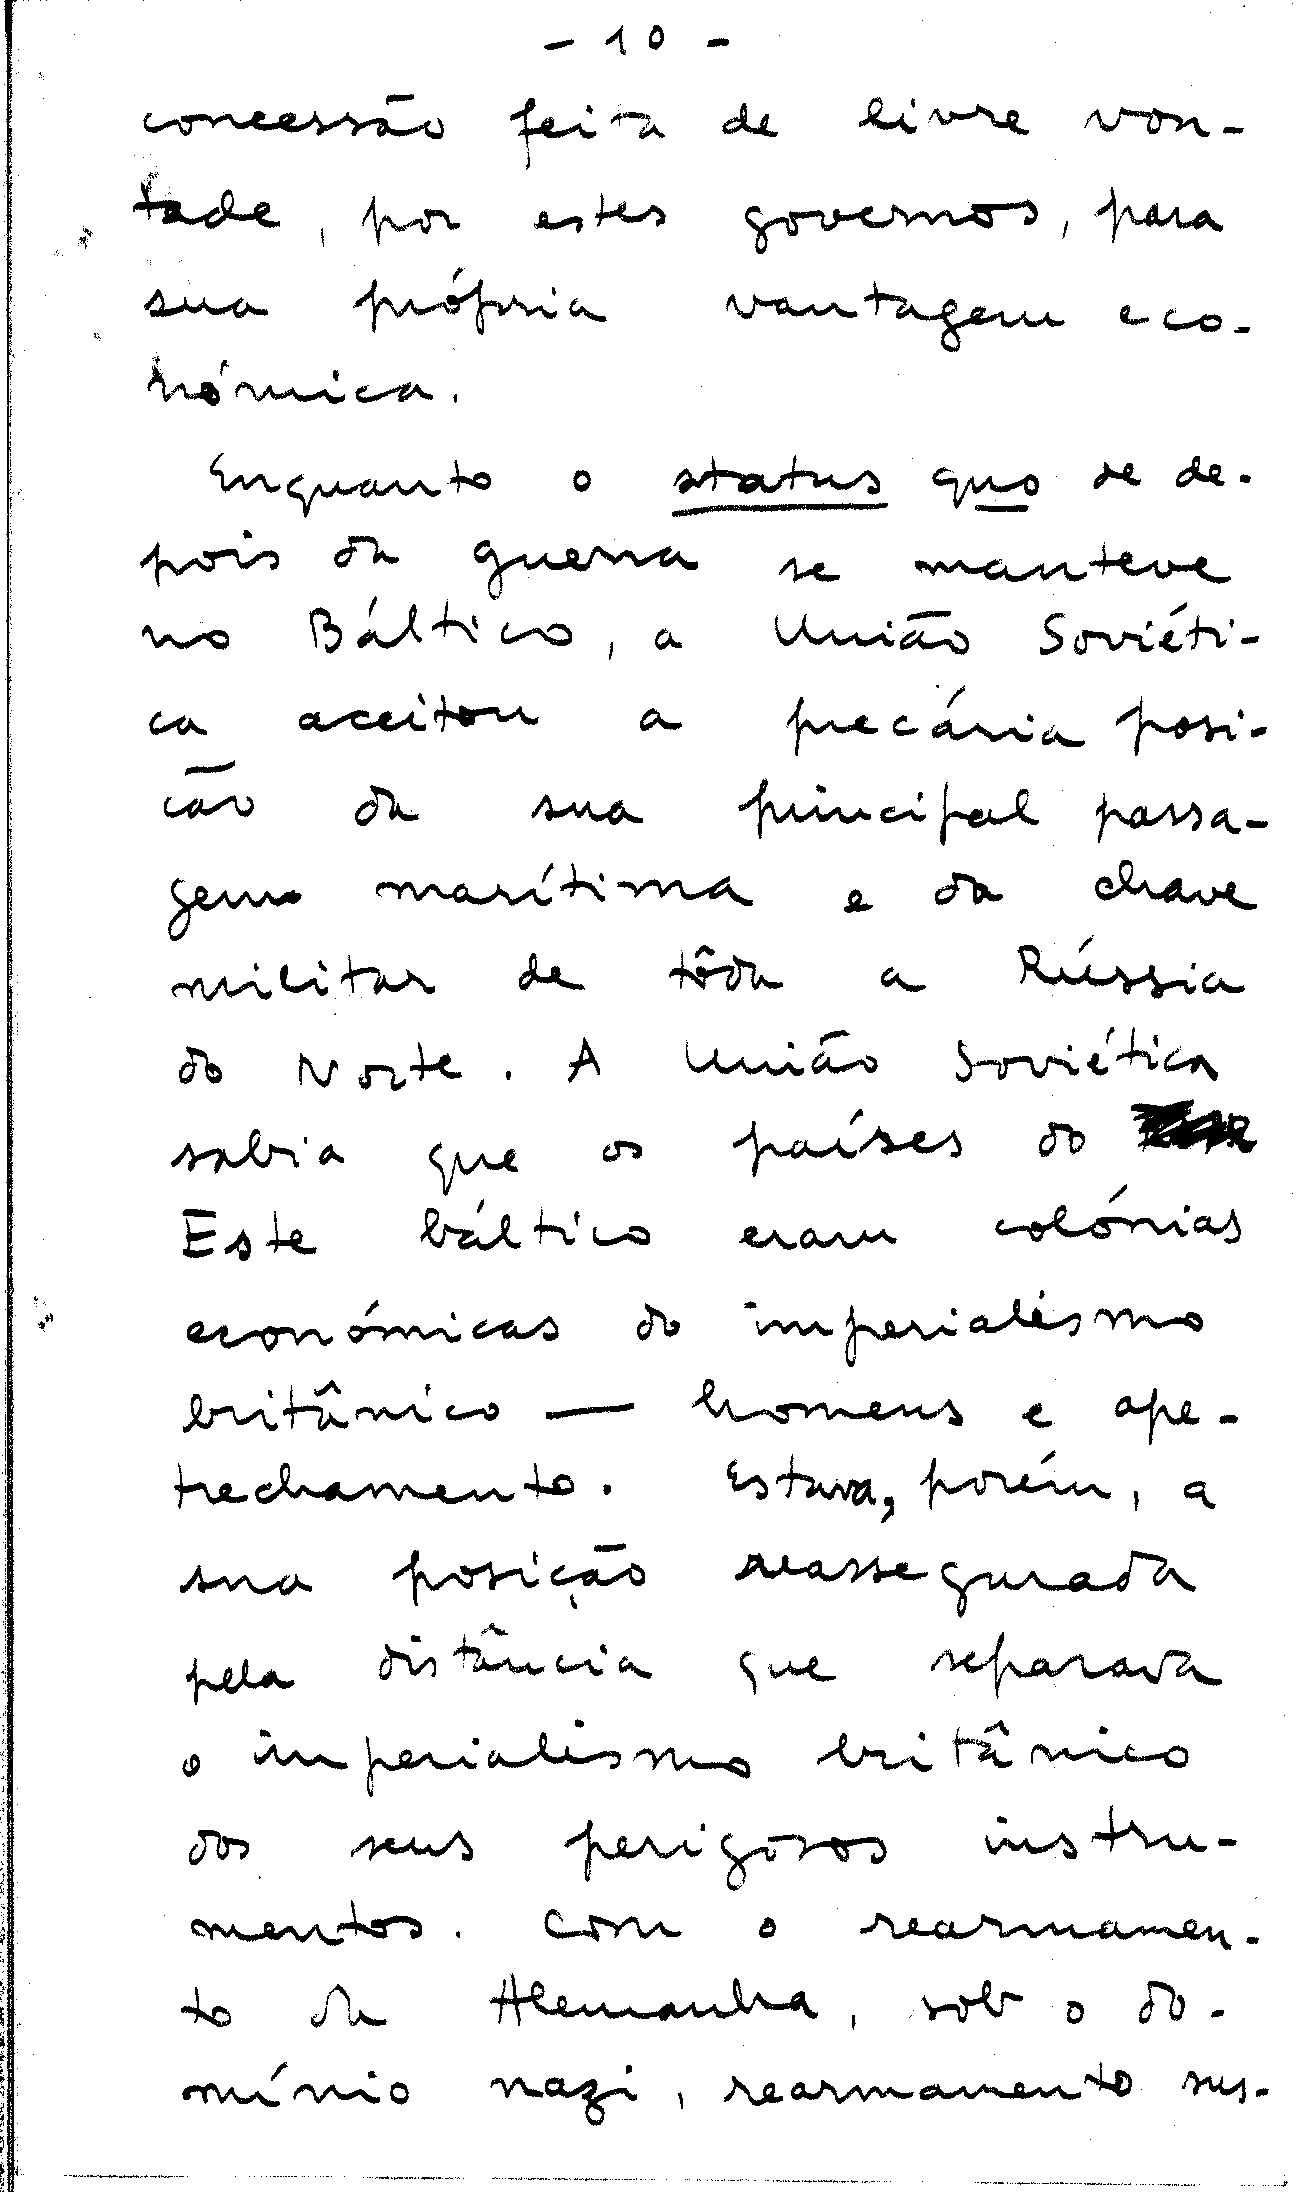 - 10 -
concessão feita de livre von-
tade, por estes governos, para
sua própria vantagem eco-
nómica.
Enquanto o status quo de de-
pois da guerra se manteve
no Báltico, a União Soviéti-
ca aceitou a precária posi-
cão da sua principal passa-
gem marítima e da chave
militar de tôda a Rússia
do Norte. A União Soviética
sabia que os países do
Este báltico eram colónias
económicas do imperialismo
britânico — homens e ape-
trechamento. Estava, porém, a
sua posição reassegurada
pela distância que separava
o imperialismo britânico
dos seus perigosos instru-
mentos. Com o rearmamen-
to da Alemanha, sob o do-
mínio nazi, rearmamento sus-